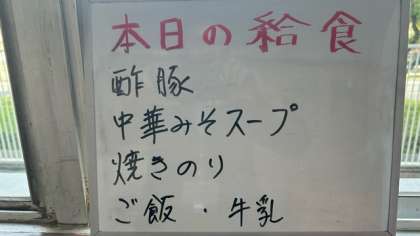 本日の給食
酢豚
中華みそスープ
焼きのり
ご飯・牛乳